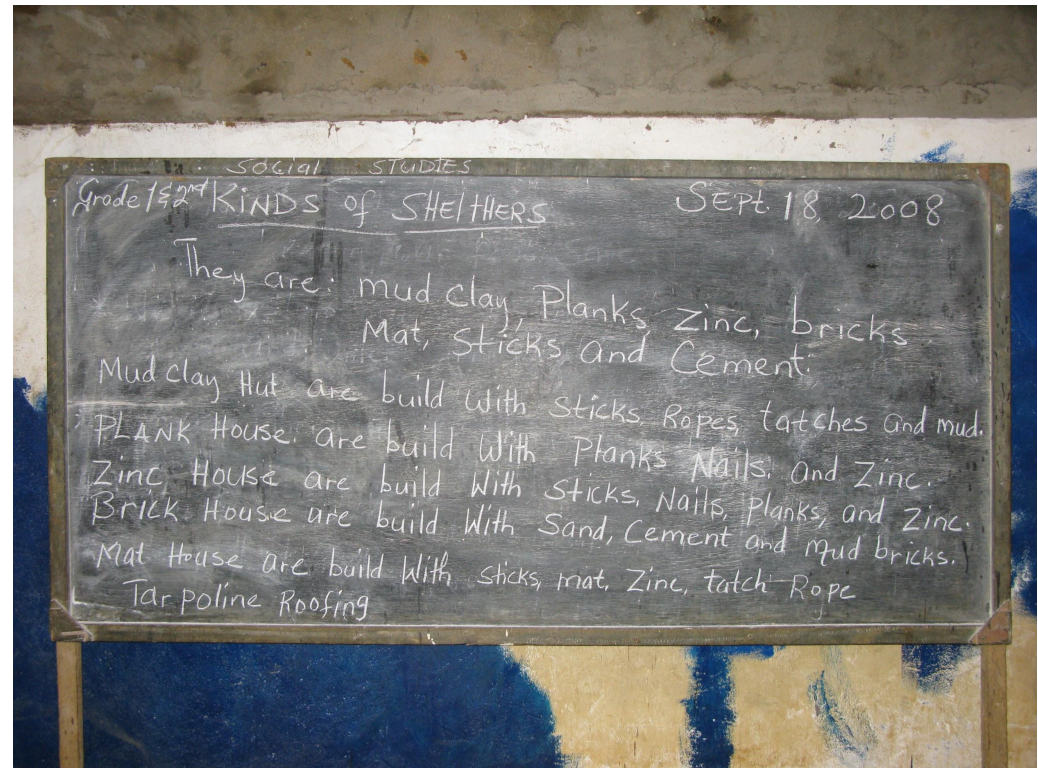 SOCial STUDIES
Grade 1 & 2nd KiNDS of SHElTHERS SEPt. 18, 2008
They are: mud clay, Planks, Zinc, bricks
Mat, Sticks and Cement.
Mud clay Hut are build with sticks, Ropes, tatches and mud.
PLANK House. are build With Planks Nails. and Zinc.
Zinc House are build With sticks, Nails, planks, and Zinc.
Brick House are build With Sand, Cement and mud bricks.
Mat House are build With sticks, mat, Zinc, tatch Rope
Tarpoline Roofing